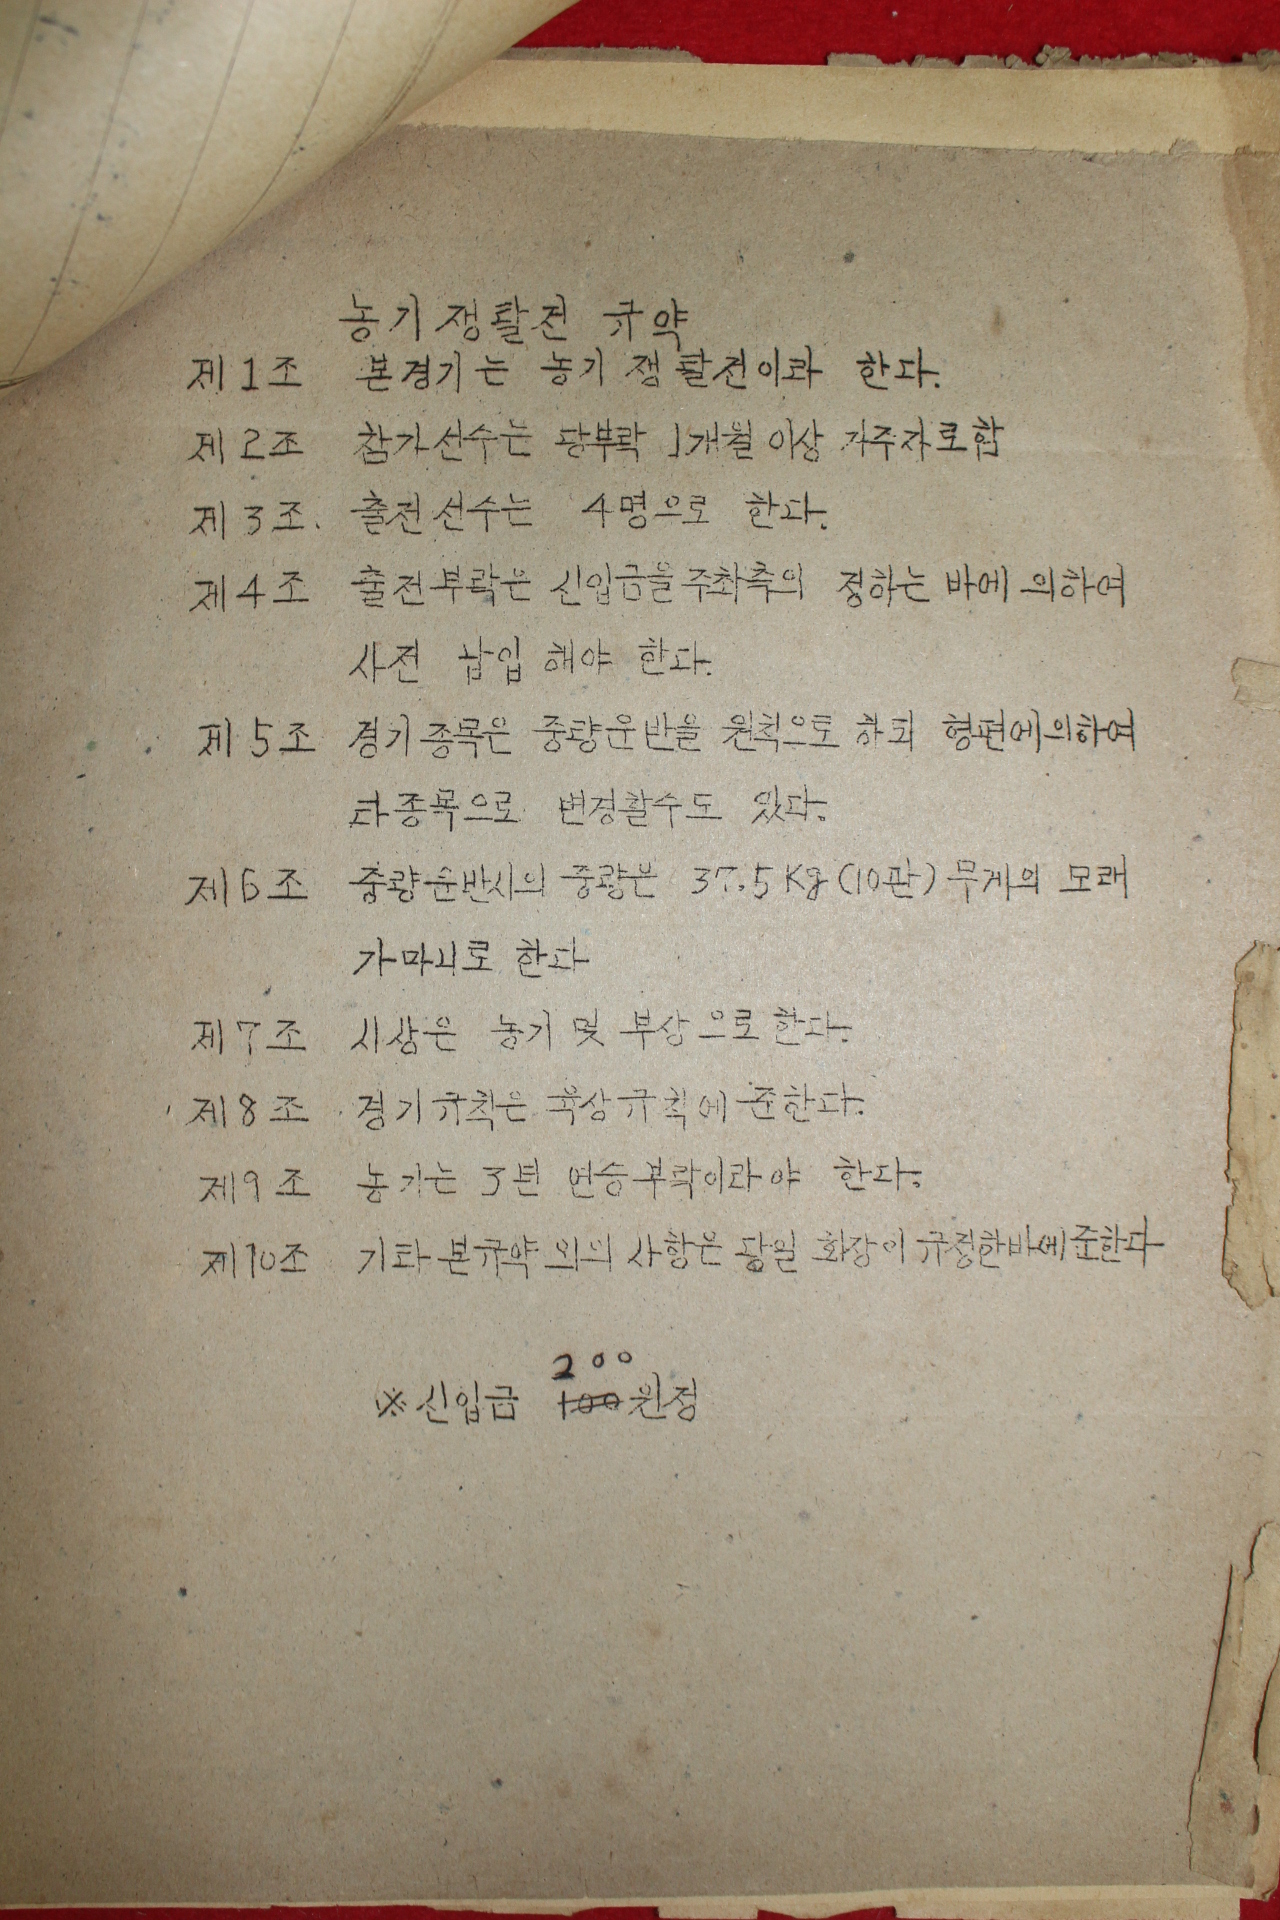 농기쟁탈전 규약
제1조 본경기는 농기 쟁탈전이라 한다.
제2조 참가선수는 당부락 1개월 이상 거주자로함
제3조. 출전선수는 4명으로 한다.
제4조 출전부락은 신입금을 주최측의 정하는 바에 의하여
사전 납입 해야 한다.
제5조 경기종목은 중량운반을 원칙으로 하되 형편에의하여
타종목으로 변경할수도 있다.
제6조 중량운반시의 중량은 37.5Kg(10관)무게의 모래
가마니로 한다
제7조 시상은 농기 및 부상으로한다.
제8조 경기규칙은 육상규칙에 준한다.
제9조 농기는 3년 연승부락이라야 한다.
제10조 기타 본규약 외의 사항은 당일 회장이 규정한바에준한다
200
※신입금 100원정